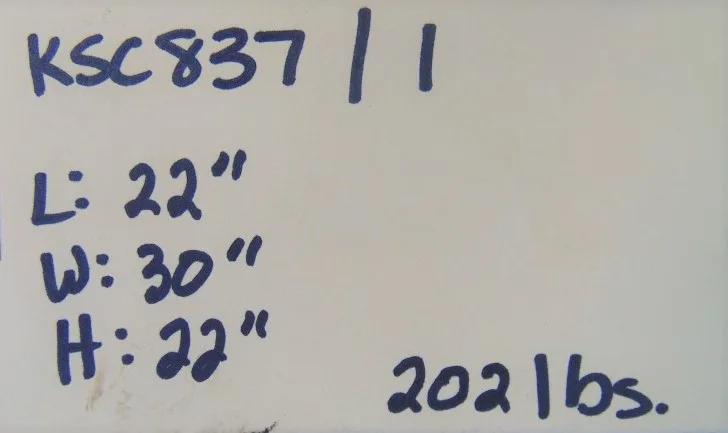 KSC837 / 1
L: 22"
W: 30"
H: 22"
202 lbs.